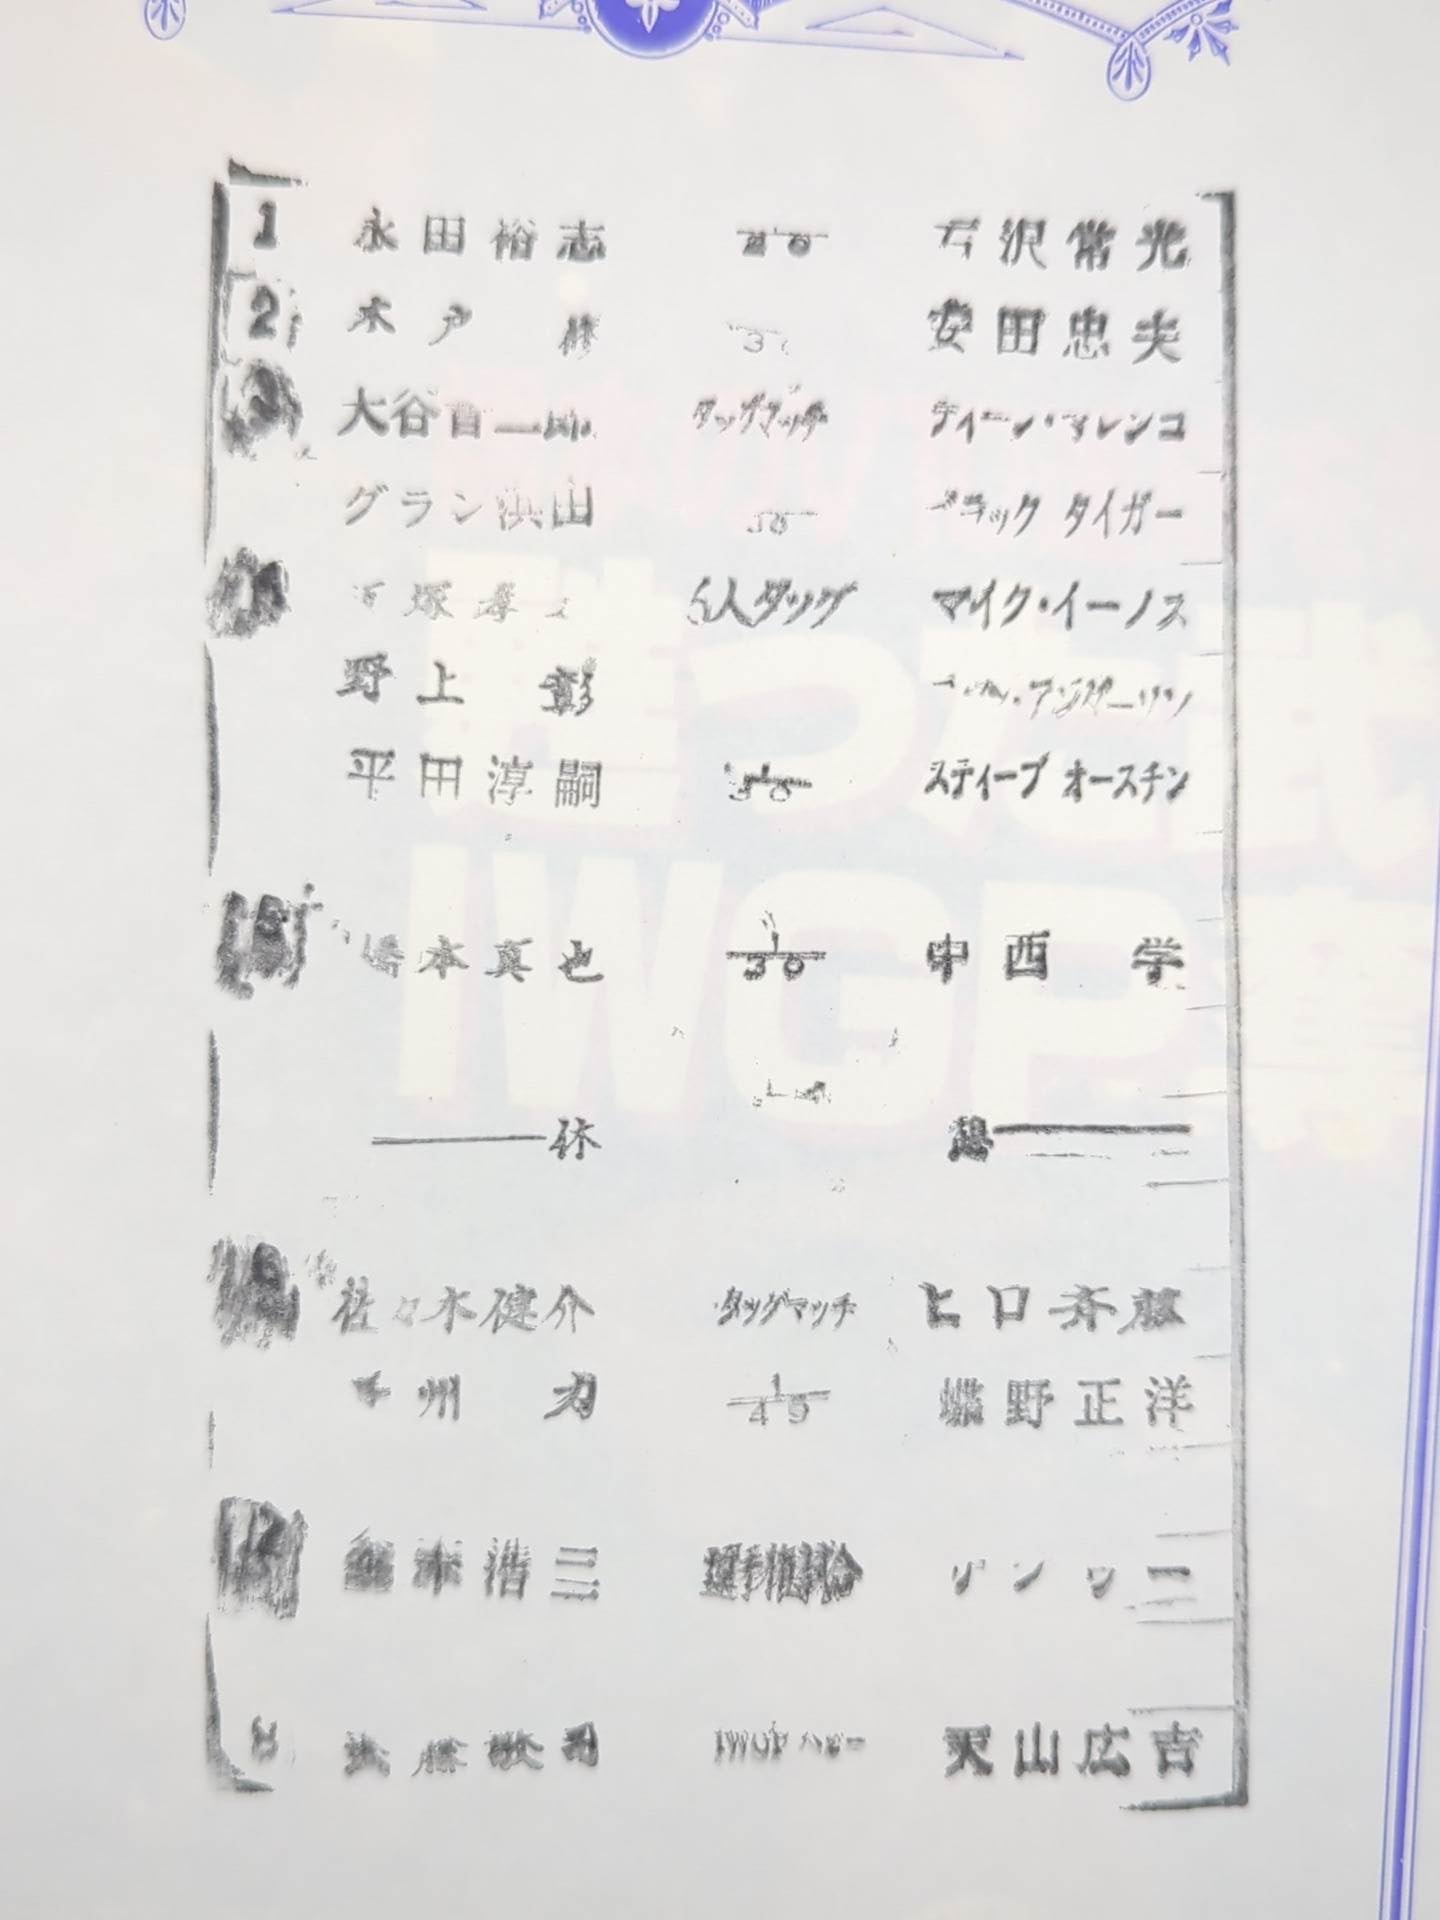 1 永田裕志 20 石沢常光
2 木戸修 安田忠夫
大谷晋二郎 タッグマッチ ディーン・マレンコ
グラン浜田 30 ブラック タイガー
塚孝 6人タッグ マイク・イーノス
野上彰 アンダーソン
平田淳嗣 1/30 スティーブ オースチン
5 橋本真也 1/30 中西学
休 憩
佐々木健介 タッグマッチ ヒロ斉藤
州力 1/45 蝶野正洋
木浩二 選手権試合
8 武藤敬司 IWGP ヘビー 天山広吉